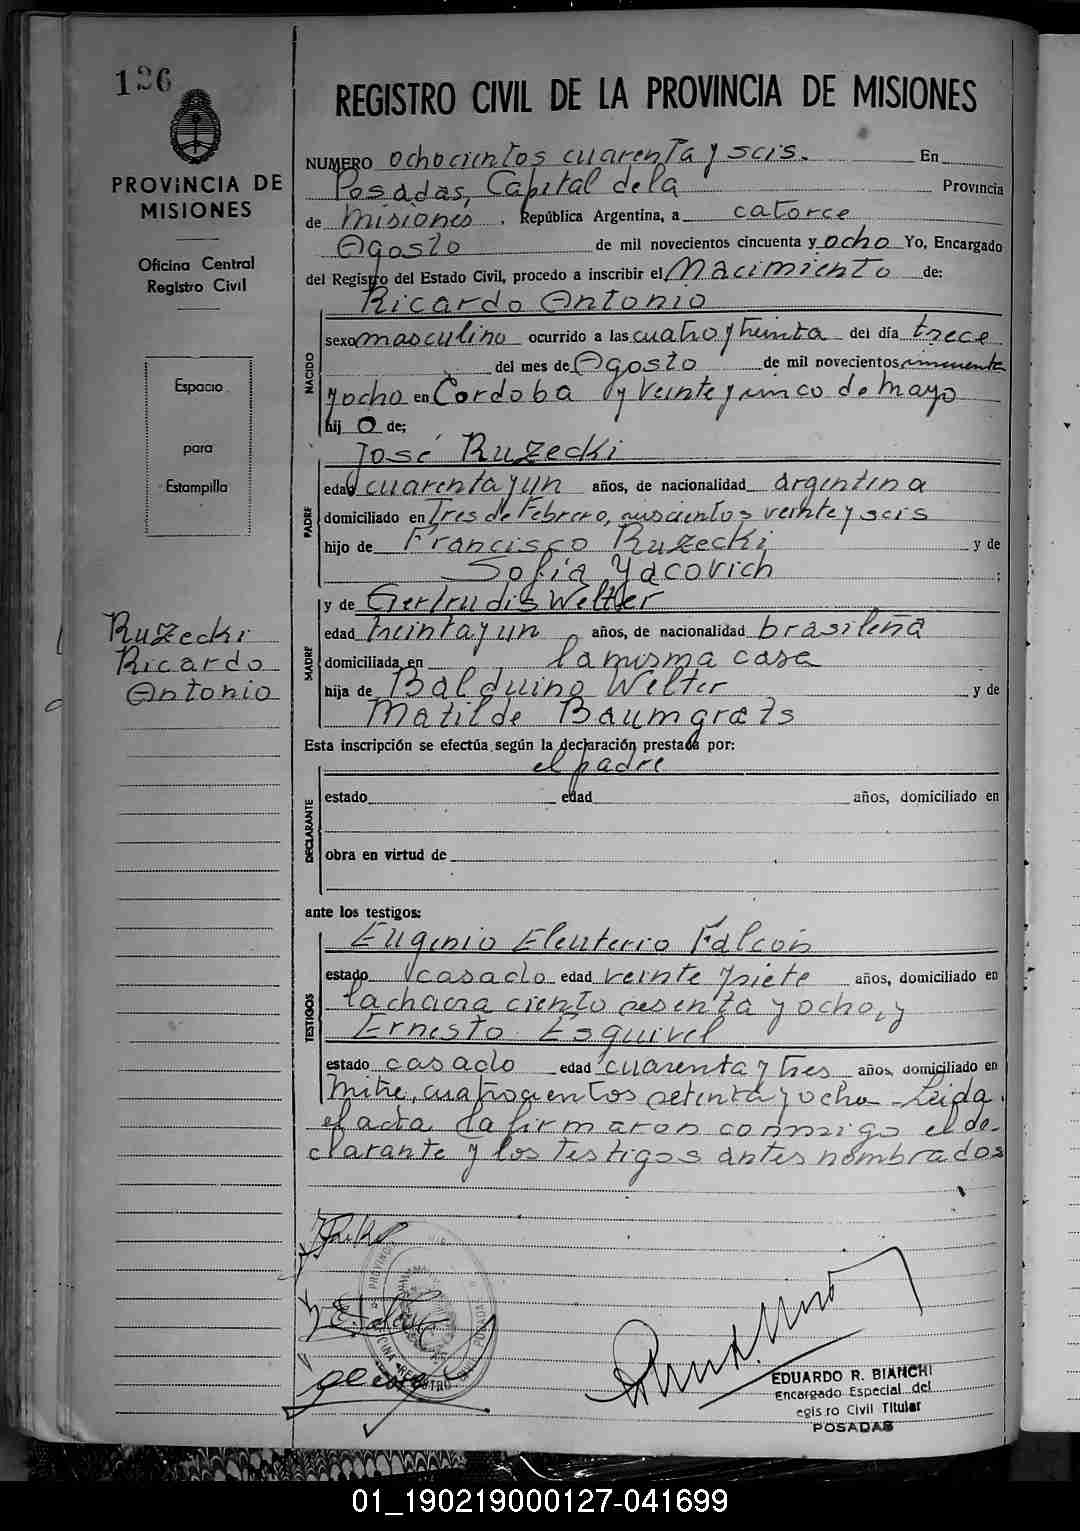 126
PROVINCIA DE
MISIONES
Oficina Central
Registro Civil
Espacio
para
Estampilla
Ruzecki
Ricardo
Antonio
REGISTRO CIVIL DE LA PROVINCIA DE MISIONES
NUMERO ochocientos cuarenta y seis. En
Posadas, Capital de la Provincia
de Misiones. República Argentina, a catorce
Agosto de mil novecientos cincuenta y ocho Yo, Encargado
del Registro del Estado Civil, procedo a inscribir el Nacimiento de:
Ricardo Antonio
NACIDO
sexo masculino ocurrido a las cuatro y treinta del día trece
del mes de Agosto de mil novecientos cincuenta
y ocho en Cordoba y veinte y cinco de Mayo
hij o de;
José Ruzecki
PADRE
edad cuarenta y un años, de nacionalidad argentina
domiciliado en Tres de Febrero, veinte y seis
hijo de Francisco Ruzecki y de
Sofía Yacovich;
y de Gertrudis Welter
MADRE
edad treinta y un años, de nacionalidad brasileña
domiciliada en la misma casa
hija de Balduino Welter y de
Matilde Baumgrats
Esta inscripción se efectúa según la declaración prestada por:
el padre
DECLARANTE
estado edad años, domiciliado en
obra en virtud de
ante los testigos:
TESTIGOS
Eugenio Eleuterio Falcón
estado casado edad veinte y siete años, domiciliado en
la chacra ciento sesenta y ocho, y
Ernesto Esquivel
estado casado edad cuarenta y tres años, domiciliado en
Mitre, cuatrocientos setenta y ocho - Leida
el acta la firmaron conmigo el de-
clarante y los testigos antes nombrados
EDUARDO R. BIANCHI
Encargado Especial del
egis ro Civil Titular
POSADAS
01_190219000127-041699